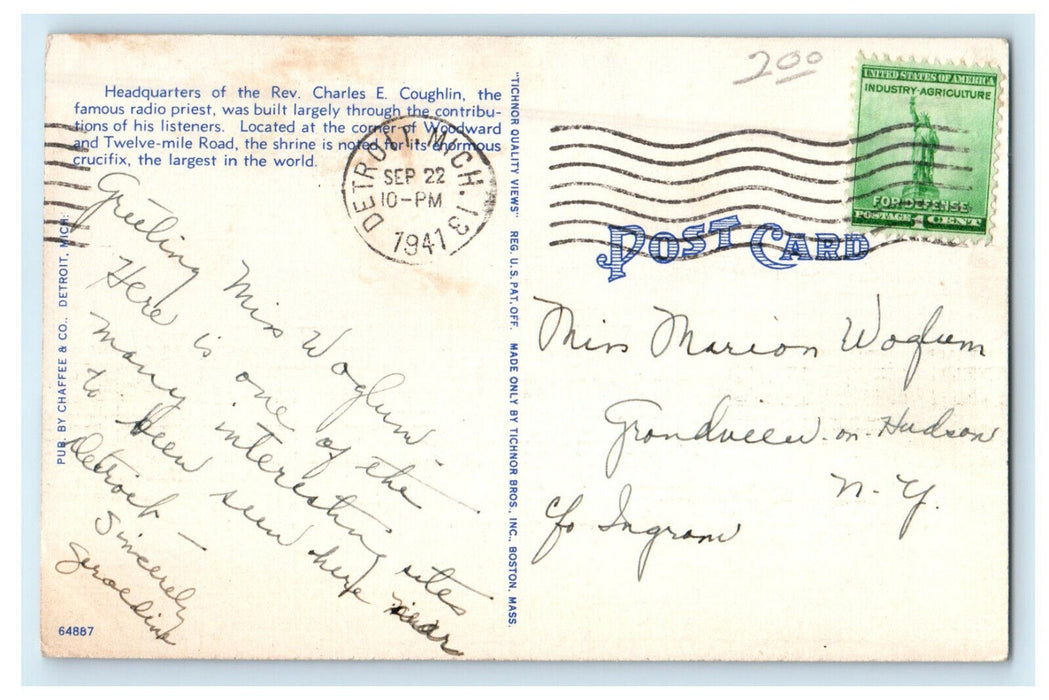 Headquarters of the Rev. Charles E. Coughlin, the
famous radio priest, was built largely through the contribu-
tions of his listeners. Located at the corner of Woodward
and Twelve-mile Road, the shrine is noted for its enormous
crucifix, the largest in the world.
DETROIT, MICH. 13
SEP 22
10-PM
1941
Greeting Miss Woglum -
Here is one of the
many interesting sites
to been seen here near
Detroit -
Sincerely
Geraldine
64887
PUB. BY CHAFFEE & CO., DETROIT, MICH.
"TICHNOR QUALITY VIEWS" REG. U.S. PAT. OFF. MADE ONLY BY TICHNOR BROS., INC., BOSTON, MASS.
2.00
UNITED STATES OF AMERICA
INDUSTRY·AGRICULTURE
FOR DEFENSE
POSTAGE 1 CENT
POST CARD
Miss Marion Woglum
Grandview-on-Hudson
N.Y.
c/o Ingram